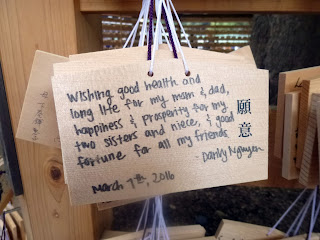 Wishing good health and
long life for my mom & dad,
happiness & prosperity for my
two sisters and niece, & good
fortune for all my friends.
- Darly Nguyen
March 7th, 2016
願意